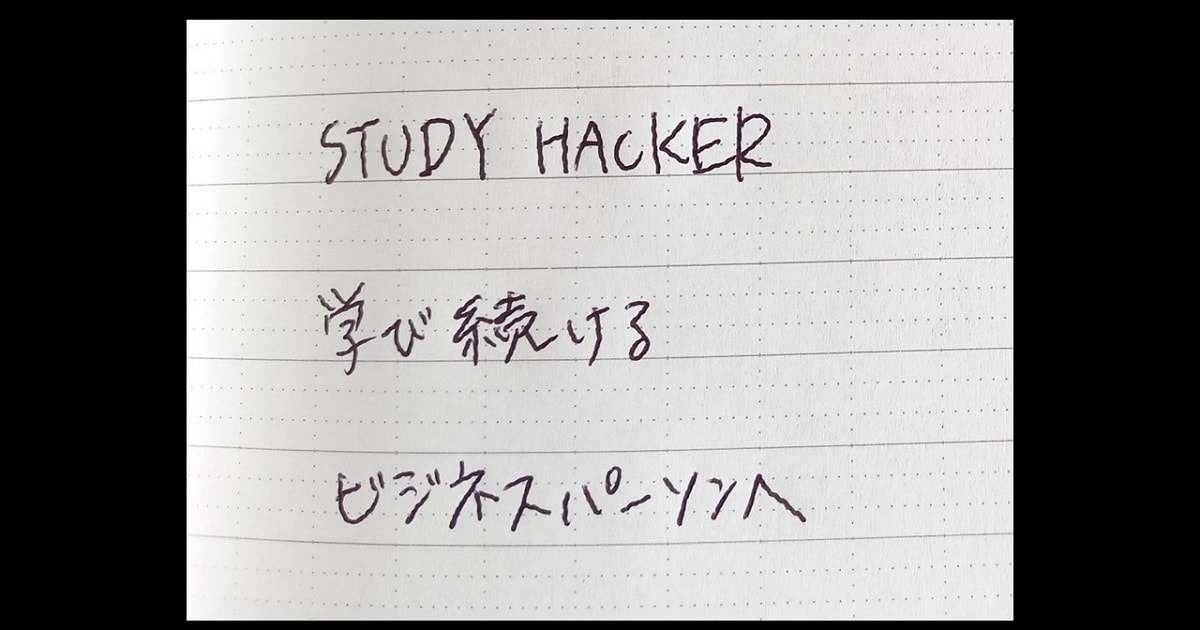 STUDY HACKER
学び続ける
ビジネスパーソンへ